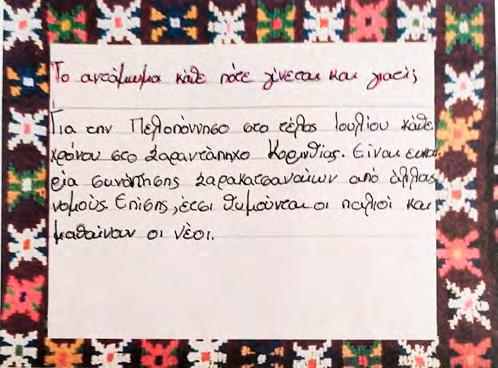 Το αντάμωμα κάθε πότε γίνεται και γιατί;
Για την Πελοπόννησο στο τέλος Ιουλίου κάθε
χρόνου στο Σαραντάπηχο Κορινθίας. Είναι ευκαι
ρία συνάντησης Σαρακατσαναίων από άλλους
νομούς. Επίσης, έτσι θυμούνται οι παλιοί και
μαθαίνουν οι νέοι.